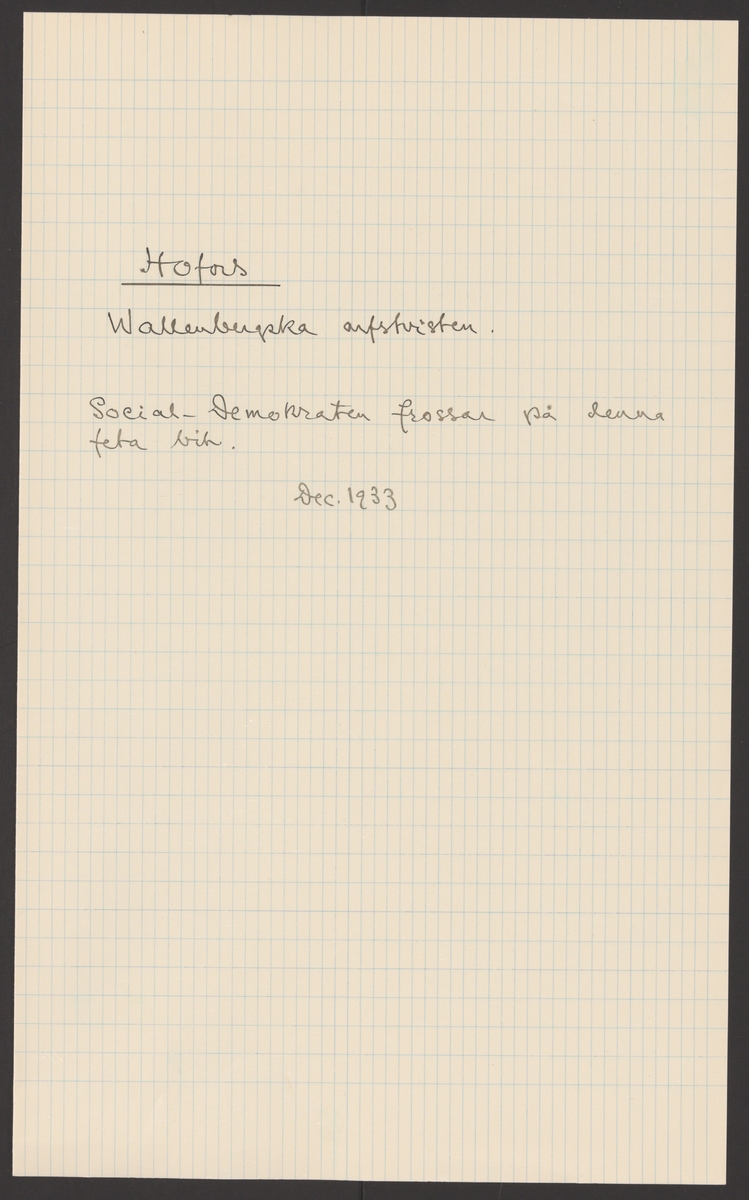 Hofors
Wallenbergska arfstvisten.
Social-Demokraten frossar på denna
feta bit.
Dec. 1933